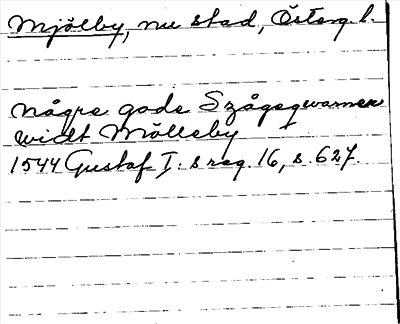 Mjölby, nu stad, Österg. l.
någre gode Szågeqwarner
widt Mölleby
1544 Gustaf I: s reg. 16, s. 627.